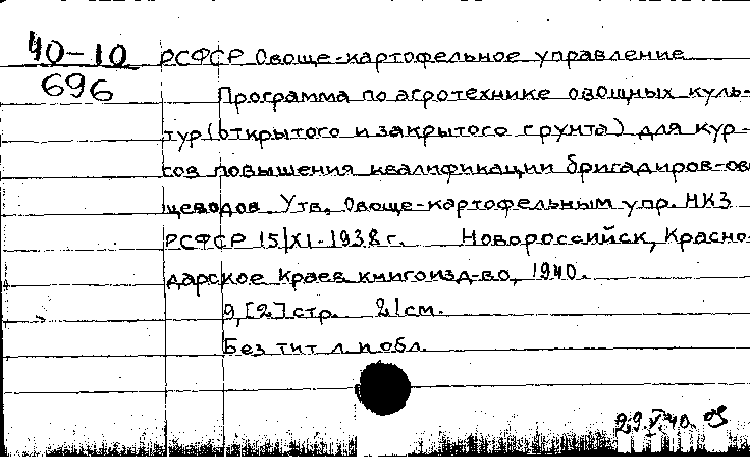 40-10
696
РСФСР Овоще-картофельное управление
Программа по агротехнике овощных куль-
тур (открытого и закрытого грунта) для кур-
сов повышения квалификации бригадиров-ово
щеводов. Утв. Овоще-картофельным упр. НКЗ
РСФСР 15/XI-1938 г. Новороссийск, Красно-
дарское краев. книгоизд-во, 1940.
9, [2] стр. 21 см.
Без тит л. и обл.
29.V.40.